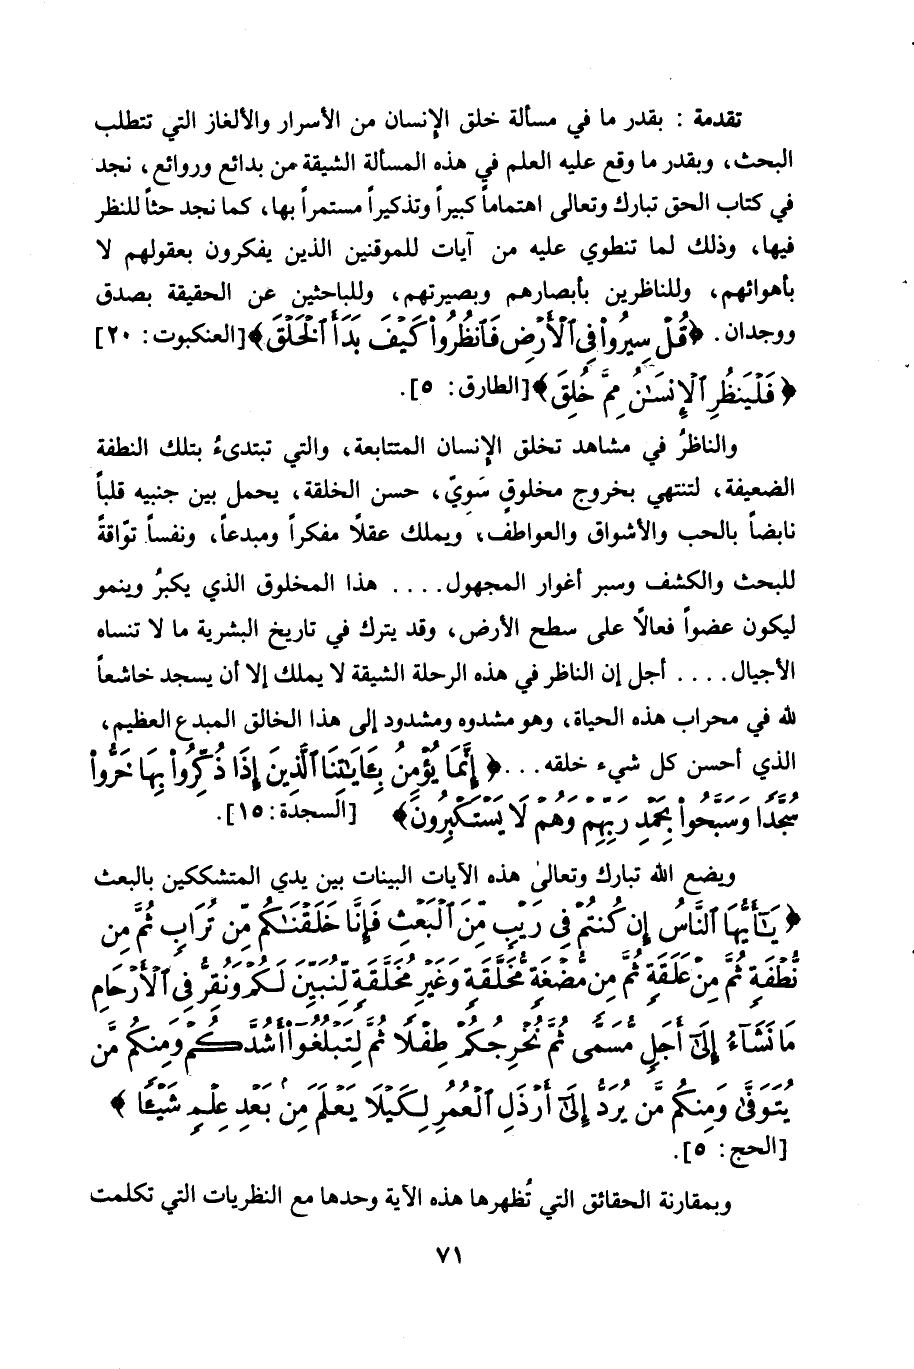 تقدمة : بقدر ما في مسألة خلق الإنسان من الأسرار والألغاز التي تتطلب
البحث، وبقدر ما وقع عليه العلم في هذه المسألة الشيقة من بدائع وروائع، نجد
في كتاب الحق تبارك وتعالى اهتماماً كبيراً وتذكيراً مستمراً بها، كما نجد حثاً للنظر
فيها، وذلك لما تنطوي عليه من آيات للموقنين الذين يفكرون بعقولهم لا
بأهوائهم، وللناظرين بأبصارهم وبصيرتهم، وللباحثين عن الحقيقة بصدق
ووجدان. ﴿قُلْ سِيرُواْ فِي ٱلْأَرْضِ فَٱنظُرُواْ كَيْفَ بَدَأَ ٱلْخَلْقَ﴾ [العنكبوت: ٢٠]
﴿فَلْيَنظُرِ ٱلْإِنسَٰنُ مِمَّ خُلِقَ﴾ [الطارق: ٥].
والناظرُ في مشاهد تخلق الإنسان المتتابعة، والتي تبتدىءُ بتلك النطفة
الضعيفة، لتنتهي بخروج مخلوقٍ سَويّ، حسن الخلقة، يحمل بين جنبيه قلباً
نابضاً بالحب والأشواق والعواطف، ويملك عقلاً مفكراً ومبدعاً، ونفساً توّاقةً
للبحث والكشف وسبر أغوار المجهول.... هذا المخلوق الذي يكبرُ وينمو
ليكون عضواً فعالاً على سطح الأرض، وقد يترك في تاريخ البشرية ما لا تنساه
الأجيال.... أجل إن الناظر في هذه الرحلة الشيقة لا يملك إلا أن يسجد خاشعاً
لله في محراب هذه الحياة، وهو مشدوه ومشدود إلى هذا الخالق المبدع العظيم،
الذي أحسن كل شيء خلقه... ﴿إِنَّمَا يُؤْمِنُ بِـَٔايَٰتِنَا ٱلَّذِينَ إِذَا ذُكِّرُواْ بِهَا خَرُّواْ
سُجَّدًا وَسَبَّحُواْ بِحَمْدِ رَبِّهِمْ وَهُمْ لَا يَسْتَكْبِرُونَ﴾ [السجدة: ١٥].
ويضع الله تبارك وتعالىٰ هذه الآيات البينات بين يدي المتشككين بالبعث
﴿يَٰٓأَيُّهَا ٱلنَّاسُ إِن كُنتُمْ فِي رَيْبٍ مِّنَ ٱلْبَعْثِ فَإِنَّا خَلَقْنَٰكُم مِّن تُرَابٍ ثُمَّ مِن
نُّطْفَةٍ ثُمَّ مِنْ عَلَقَةٍ ثُمَّ مِن مُّضْغَةٍ مُّخَلَّقَةٍ وَغَيْرِ مُخَلَّقَةٍ لِّنُبَيِّنَ لَكُمْ وَنُقِرُّ فِي ٱلْأَرْحَامِ
مَا نَشَآءُ إِلَىٰٓ أَجَلٍ مُّسَمًّى ثُمَّ نُخْرِجُكُمْ طِفْلًا ثُمَّ لِتَبْلُغُوٓاْ أَشُدَّكُمْ وَمِنكُم مَّن
يُتَوَفَّىٰ وَمِنكُم مَّن يُرَدُّ إِلَىٰٓ أَرْذَلِ ٱلْعُمُرِ لِكَيْلَا يَعْلَمَ مِنۢ بَعْدِ عِلْمٍ شَيْـًٔا﴾
[الحج: ٥].
وبمقارنة الحقائق التي تُظهرها هذه الآية وحدها مع النظريات التي تكلمت
٧١